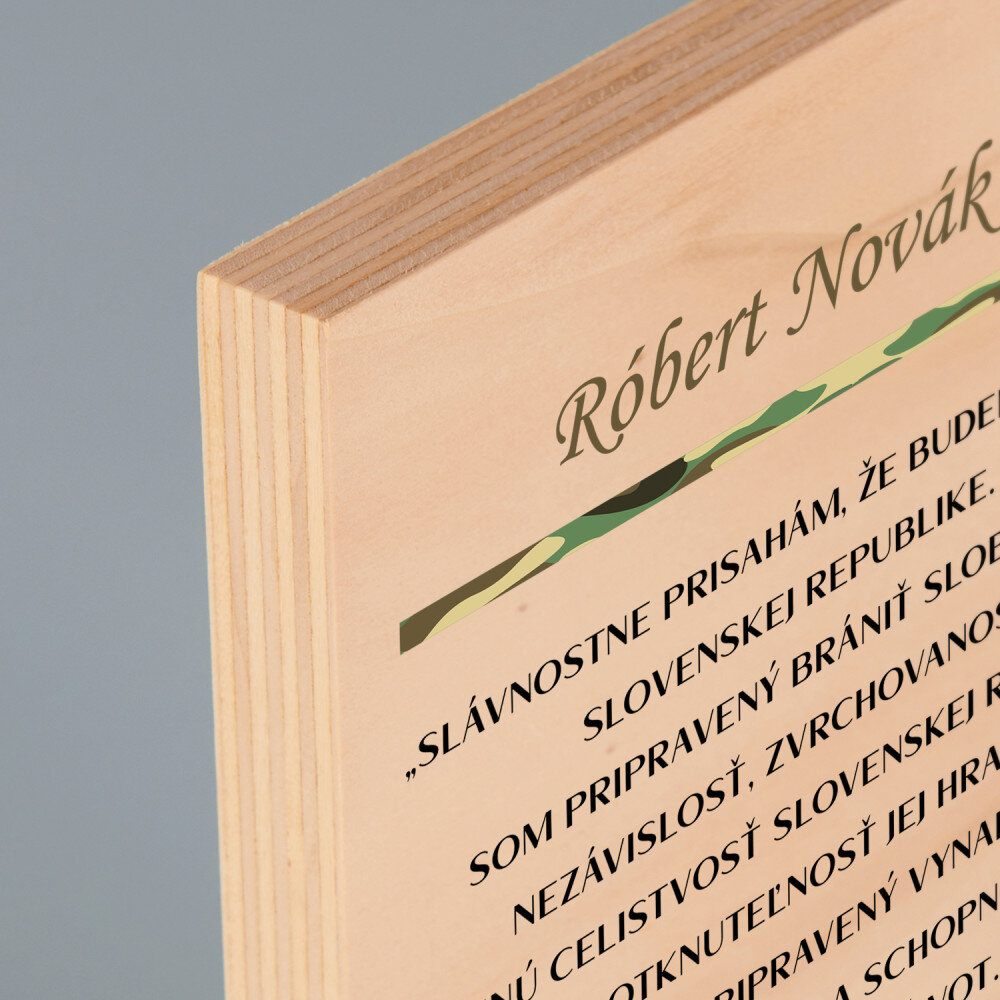 Róbert Novák
„SLÁVNOSTNE PRISAHÁM, ŽE BUDEM
SLOVENSKEJ REPUBLIKE.
SOM PRIPRAVENÝ BRÁNIŤ SLOB
NEZÁVISLOSŤ, ZVRCHOVANOS
NÚ CELISTVOSŤ SLOVENSKEJ R
OTKNUTEĽNOSŤ JEJ HRA
RIPRAVENÝ VYNA
A SCHOPN
VOT.